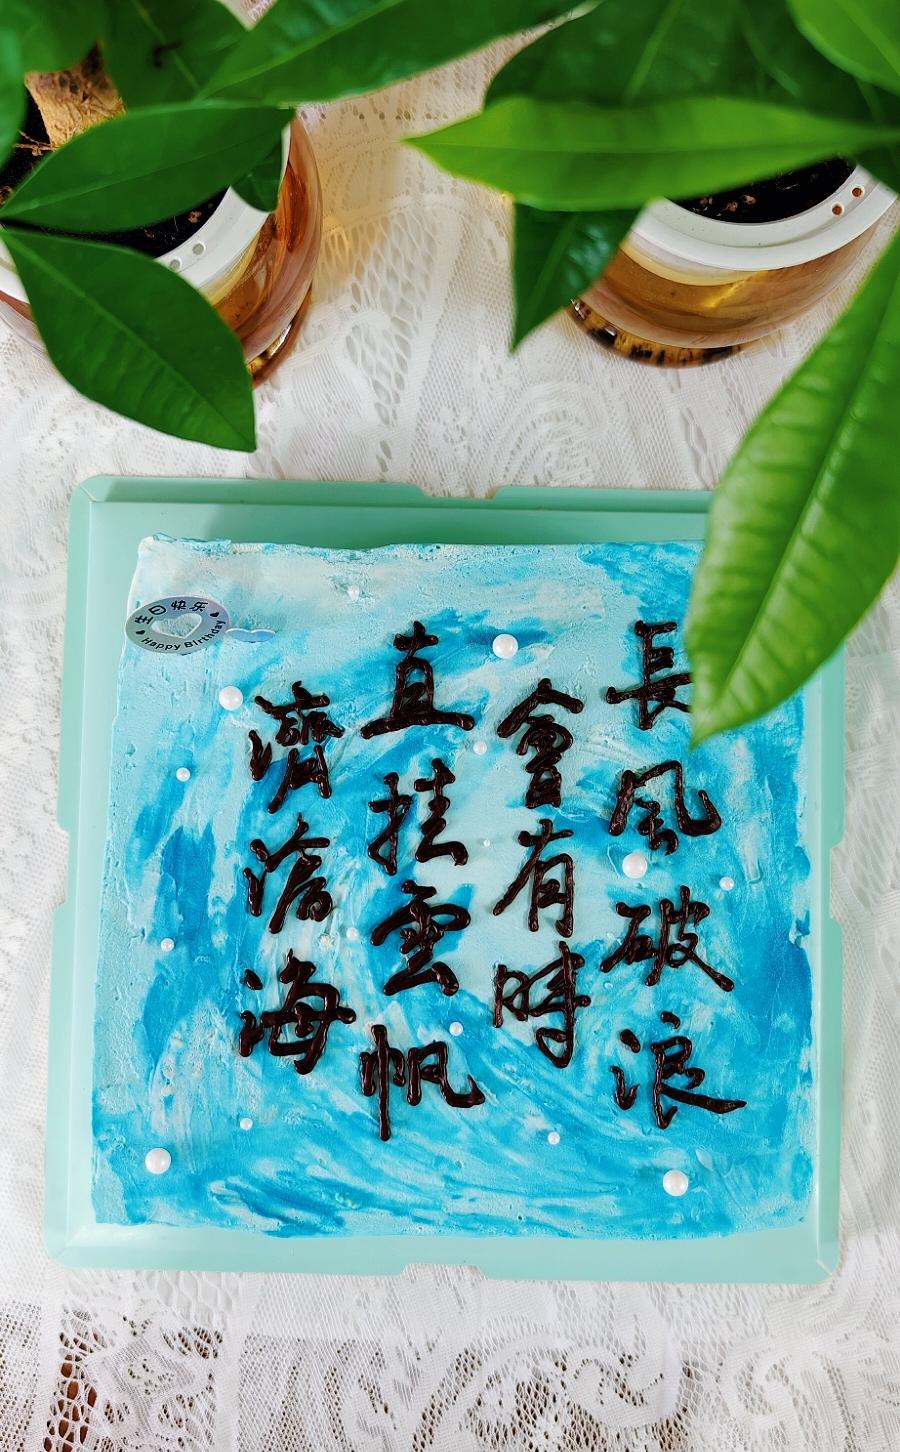 長風破浪
會有時
直挂雲帆
濟滄海
生日快乐
Happy Birthday